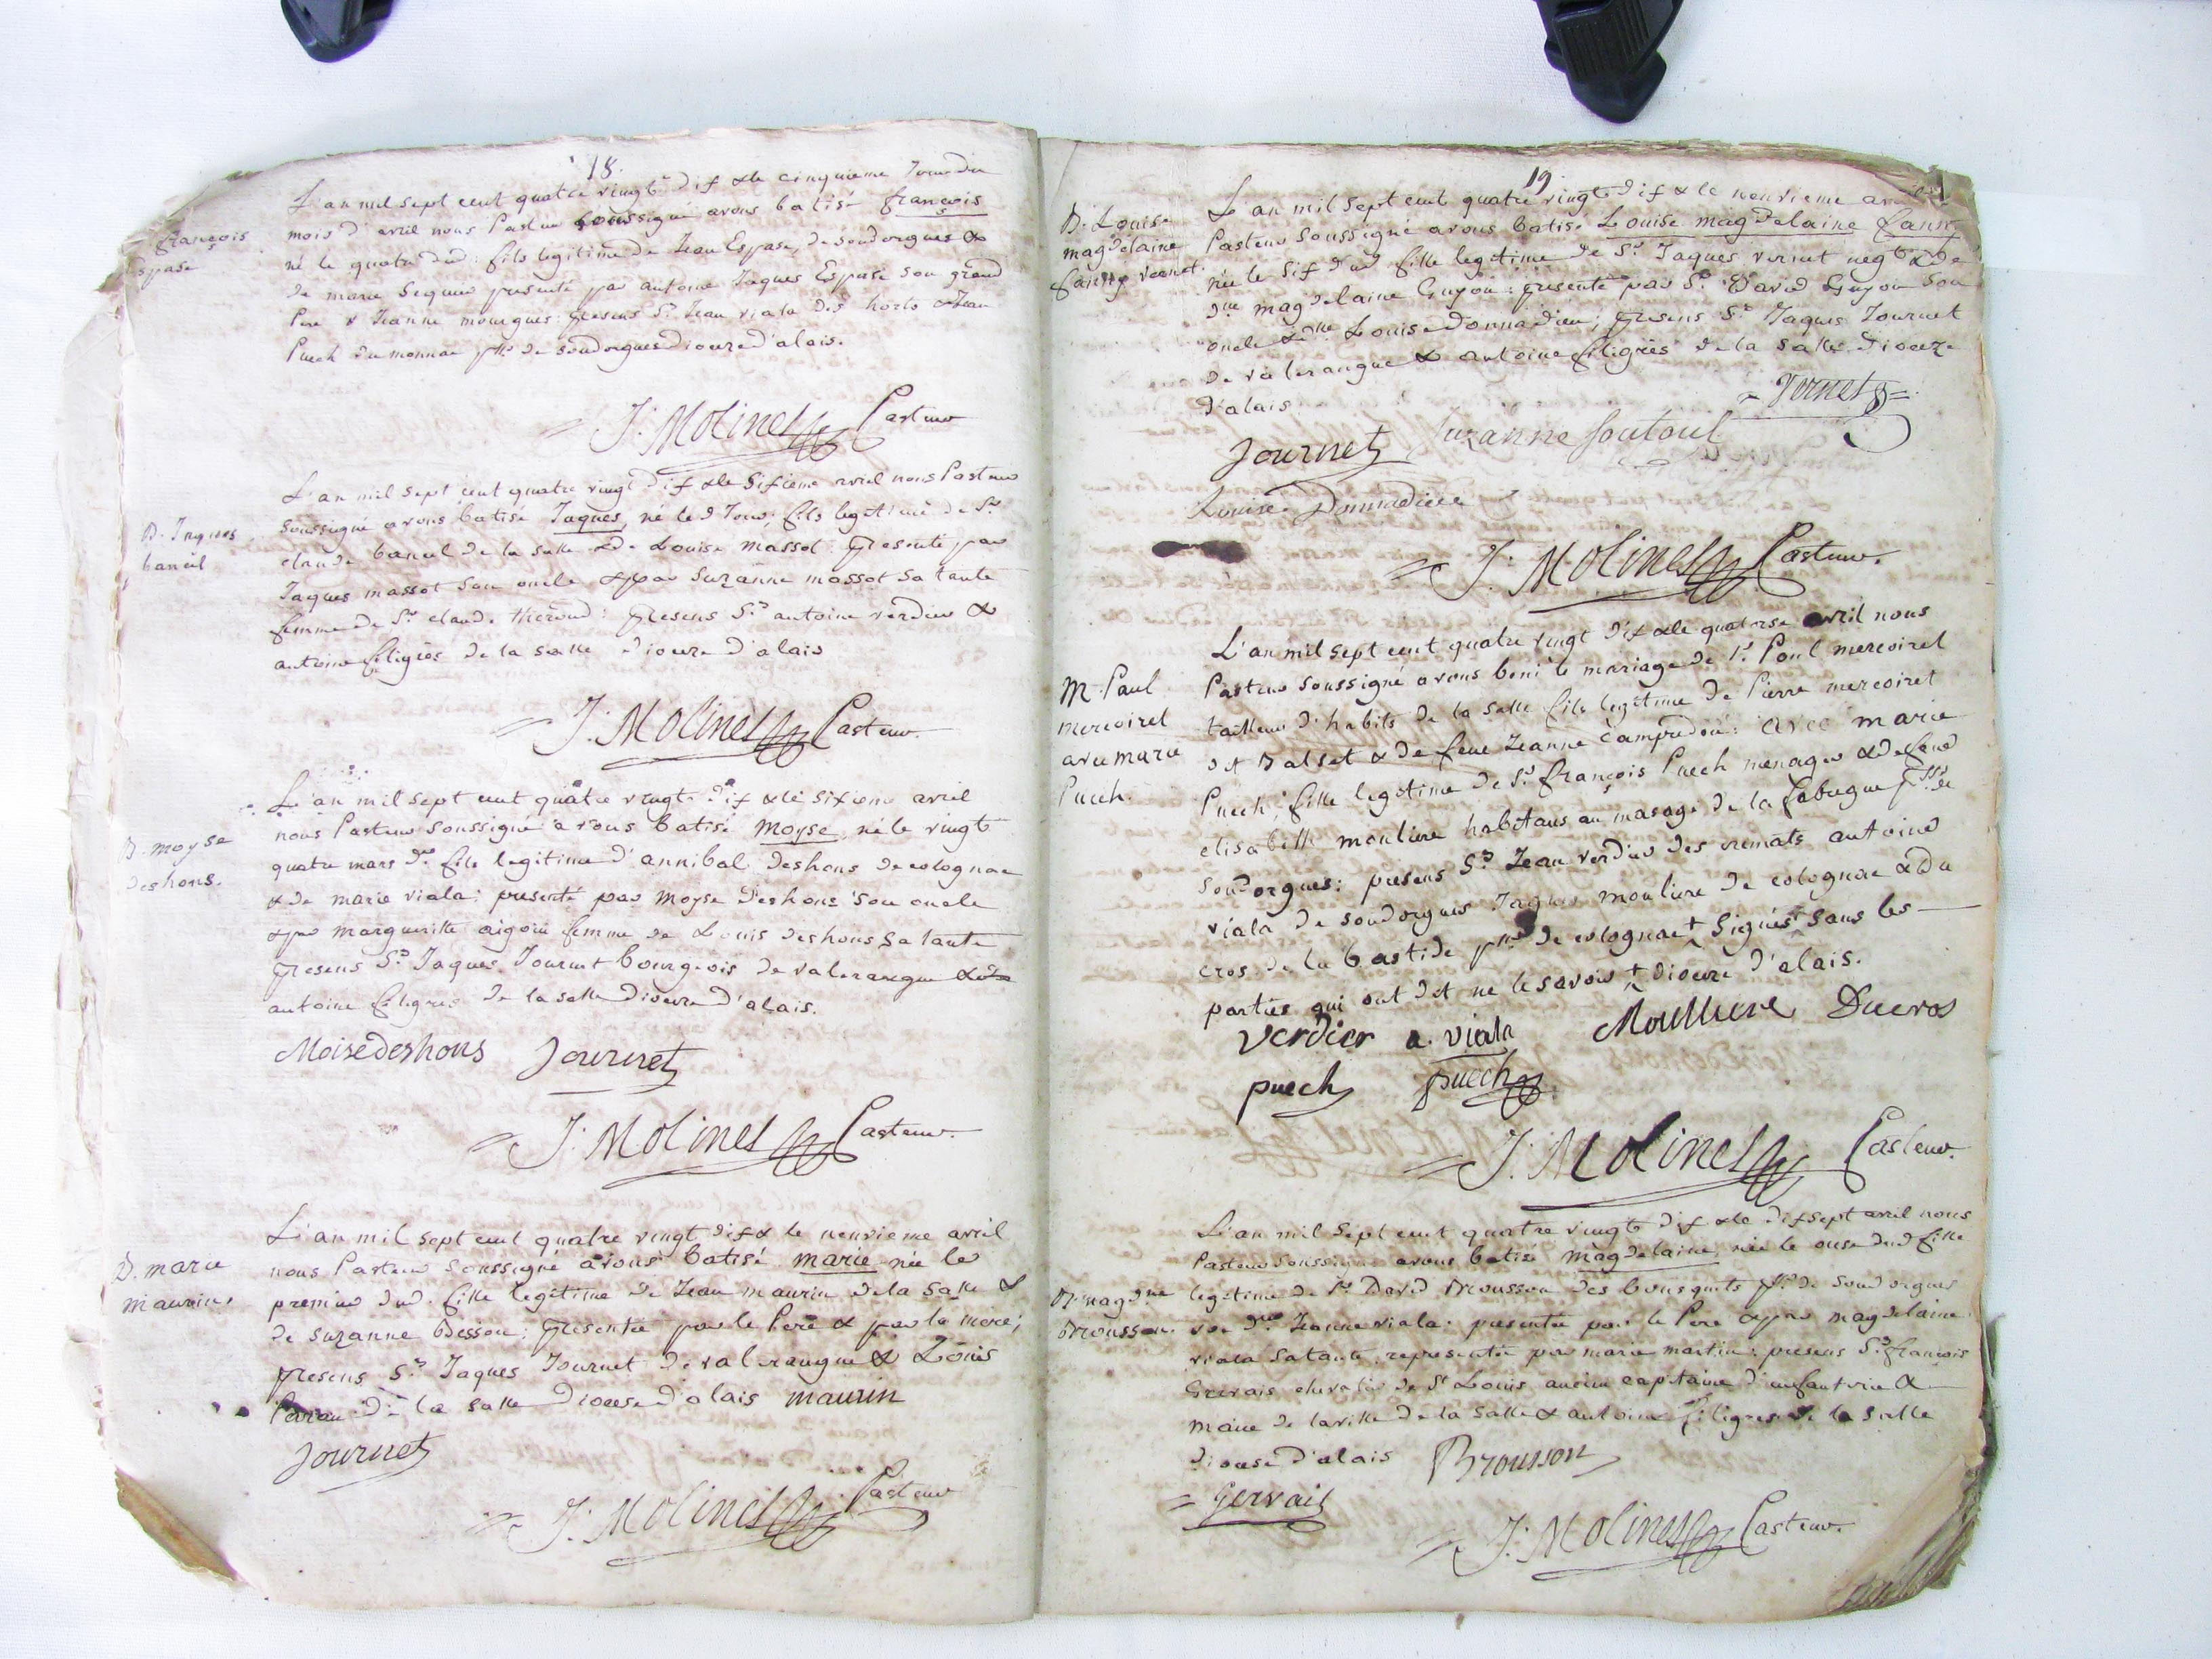 18.
françois
Espase
L'an mil sept cent quatre vingt dix & le cinquieme Jour du
mois d'avril nous Pasteur soussigné avons batisé françois
né le quatre dud. fils legitime de Jean Espase, de soudorgues &
de marie Seguin presenté par antoine Jaques Espase son grand
Pere & Jeanne mourgues: presens Srs. Jean viala des horts & Jean
Puech du monnae psse. de soudorgues Diocèze d'alais.
J: Molines Pasteur
B. Jaques
baneul
L'an mil sept cent quatre vingt dix & le Sixieme avril nous Pasteur
soussigné avons batisé Jaques, né led. Jour, fils legitime de Sr.
claude baneul de la salle & de Louise massot. Presenté par
Jaques massot son oncle & par Suzanne massot sa tante
femme de Sr. claude théround: presens Srs. antoine verdier &
antoine filigres de la salle dioceze d'alais
J: Molines Pasteur.
B. moyse
deshons.
L'an mil sept cent quatre vingt dix & le sixieme avril
nous Pasteur soussigné avons batisé moyse, né le vingt
quatre mars der. fils legitime d'annibal deshons de colognac
& de marie viala: presenté par moyse deshons son oncle
& par marguerite aigoin femme de Louis deshons sa tante
presens Srs. Jaques Journet bourgeois de valeraugue &
antoine filigres de la salle dioceze d'alais.
Moise deshons Journet
J: Molines Pasteur.
B. marie
maurin.
L'an mil sept cent quatre vingt dix & le neuvieme avril
nous Pasteur soussigné avons batisé marie née le
premier dud. fille legitime de Jean maurin de la salle &
de suzanne Besson; presentée par le Pere & par la mere;
presens Srs. Jaques Journet de valeraugue & Louis
Pavau de la salle Diocese d'alais maurin
Journet
J: Molines Pasteur
19.
B. Louise
magdelaine
fanny vernet.
L'an mil sept cent quatre vingt dix & le neuvieme avril
Pasteur soussigné avons batisé Louise magdelaine fanny
née le six dud. fille legitime de Sr. Jaques vernet negt. & de
dlle magdelaine Guyon: presenté par Sr. David Guyon son
oncle & dlle Louise Donnadieu; presens Srs. Jaques Journet
de valeraugue & antoine filigres de la salle dioceze
d'alais
Vernet
Journet Suzanne soutoul
Louise Donnadieu
J: Molines Pasteur.
M. Paul
mercoiret
avec marie
Puech.
L'an mil sept cent quatre vingt dix & le quatorse avril nous
Pasteur soussigné avons beni le mariage de Sr. Paul mercoiret
tailleur d'habits de la salle fils legitime de Pierre mercoiret
dit Balset & de feue Jeanne Campredon: avec marie
Puech, fille legitime de Sr. françois Puech menager & de feue
elisabeth mouliere habitans au masage de la fabregue psse. de
Soudorgues: presens Srs. Jean verdier des cremats antoine
viala de soudorgues Jaques mouliere de colognac & du
cros de la bastide psse. de colognac + Signés Sans les
parties qui ont dit ne le savoir + dioceze d'alais.
verdier a. viala Moulliere Ducros
puech puech
J: Molines Pasteur.
B. magdne
Brousson.
L'an mil sept cent quatre vingt dix & le dixsept avril nous
Pasteur soussigné avons batisé magdelaine, née le onse dud. fille
legitime de Sr. David Brousson des bousquets psse. de soudorgues
& de dlle Jeanne viala. presentée par le Pere & par magdelaine
viala sa tante, representée par marie martin; presens Srs. françois
Gervais chevalier de St Louis ancien capitaine d'infanterie &
maire de la ville de la Salle & antoine filigres de la salle
diocese d'alais Brousson
Gervais
J: Molines Pasteur.